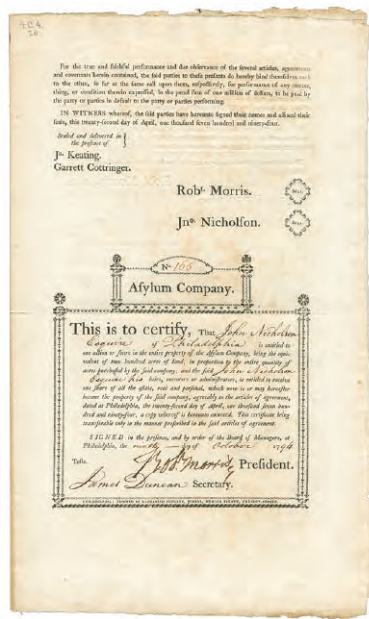 For the true and faithful performance and due observance of the several articles, agreements
and covenants herein contained, the said parties to these presents do hereby bind themselves each
to the other, so far as the same call upon them, respectively, for performance of any matter,
thing, or condition therein expressed, in the penal sum of one million of dollars, to be paid by
the party or parties in default to the party or parties performing.
IN WITNESS whereof, the said parties have hereunto signed their names and affixed their
seals, this twenty-second day of April, one thousand seven hundred and ninety-four.
Sealed and delivered in
the presence of
Jno. Keating.
Garrett Cottringer.
Robt. Morris.
Jno. Nicholson.
No. 165
Asylum Company.
This is to certify, That John Nicholson
Esquire of Philadelphia is entitled to
one action or share in the entire property of the Asylum Company, being the equi-
valent of two hundred acres of land, in proportion to the entire quantity of
acres purchased by the said company; and the said John Nicholson
Esquire his heirs, executors or administrators, is entitled to receive
one share of all the estate, real and personal, which now is or may hereafter
become the property of the said company, agreeably to the articles of agreement,
dated at Philadelphia, the twenty-second day of April, one thousand seven hun-
dred and ninety-four, a copy whereof is hereunto annexed. This certificate being
transferable only in the manner prescribed in the said articles of agreement.
SIGNED in the presence, and by order of the Board of Managers, at
Philadelphia, the day of October 1794
Teste. Robt Morris President.
James Duncan Secretary.